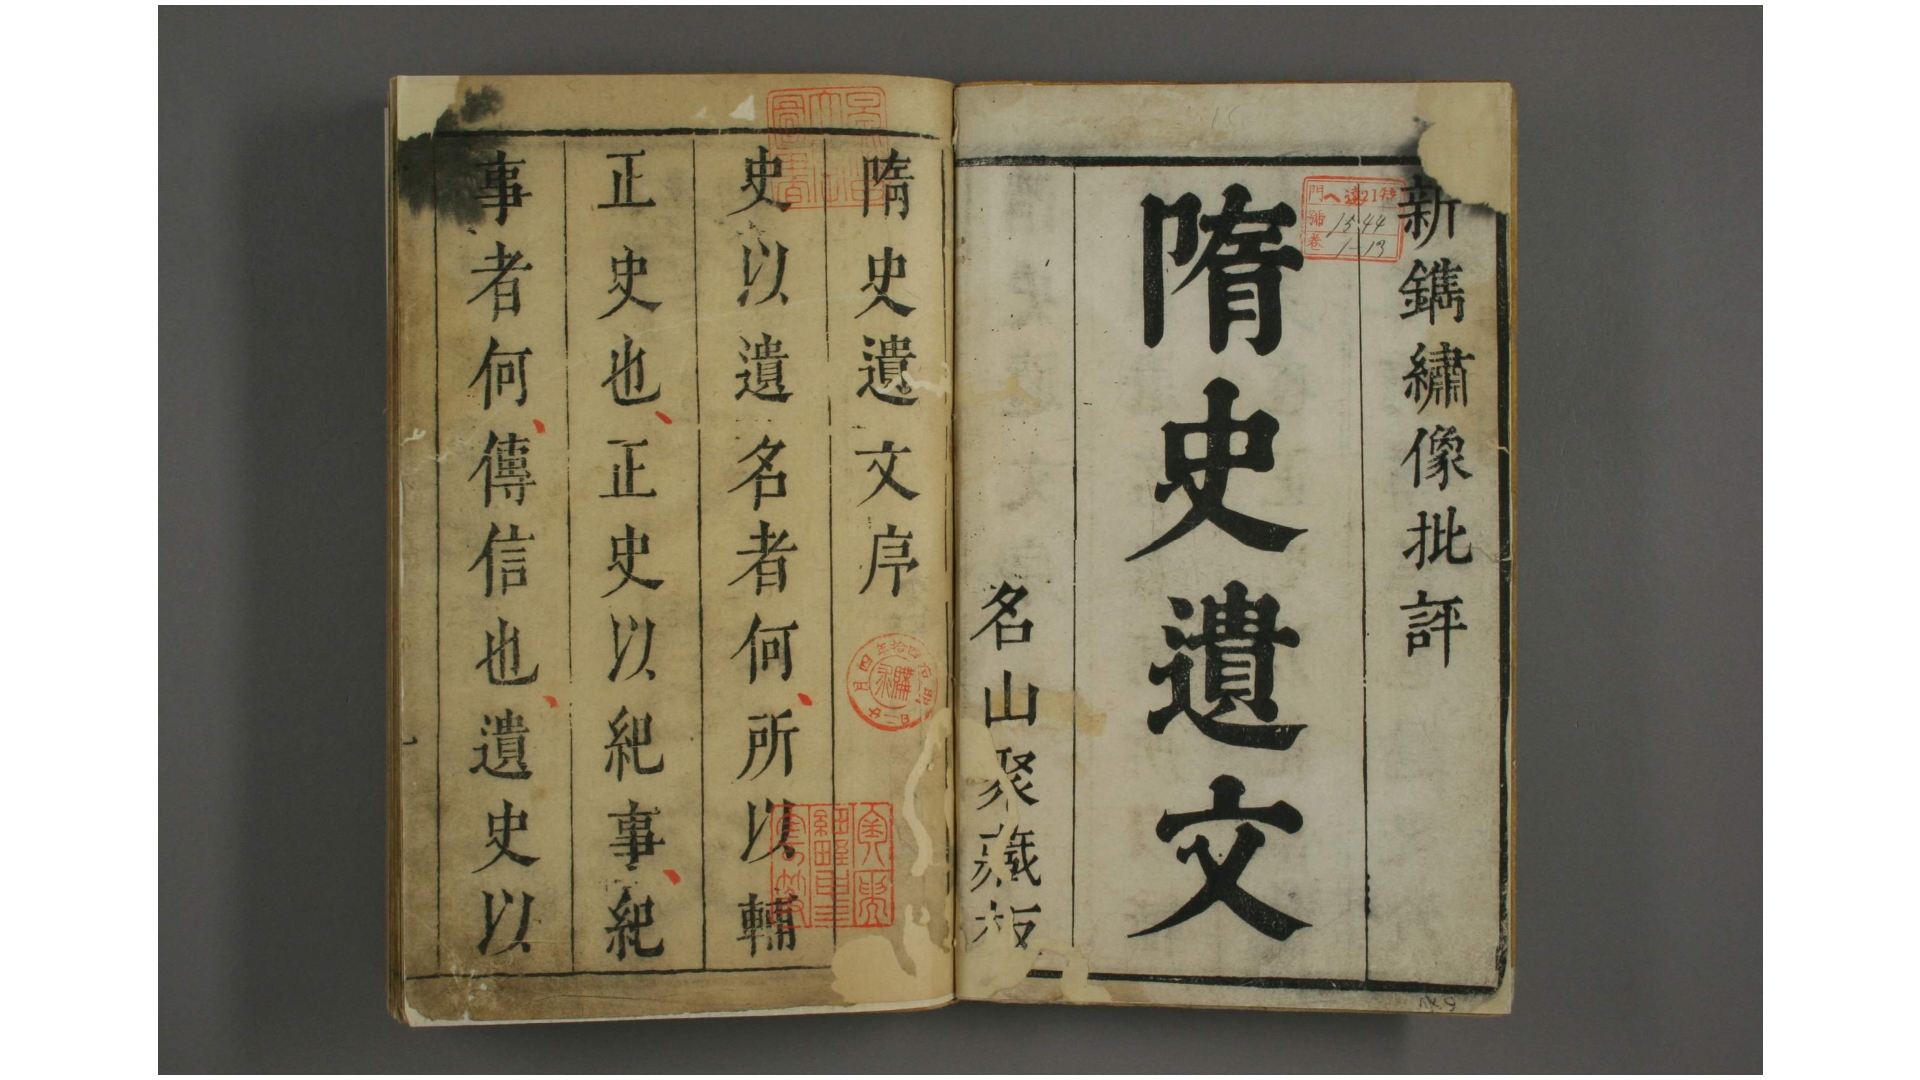 新鐫繡像批評
隋史遺文
名山聚藏板
門 ヘ遠21特
號 1544
卷 1-13
隋史遺文序
史以遺名者何所以輔
正史也正史以紀事紀
事者何傳信也遺史以